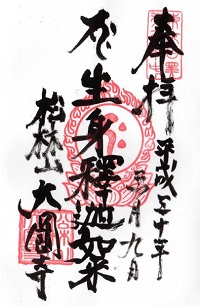 奉拝
平成三十年
五月九日
生身釋迦如来
松林山 大圓寺